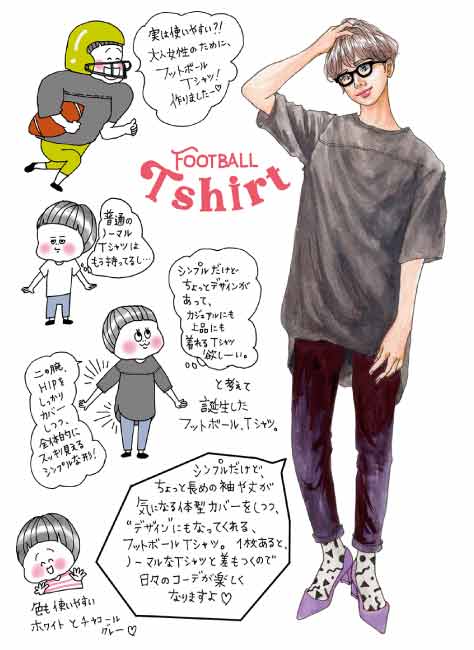 実は使いやすい?!
大人女性のために、
フットボール
Tシャツ!
作りましたー♡
FOOTBALL
Tshirt
普通の
ノーマル
Tシャツは
もう持ってるし…
シンプルだけど
ちょっとデザインが
あって、
カジュアルにも
上品にも
着れるTシャツ
欲しーい。
と考えて
誕生した
フットボールTシャツ。
二の腕、
HIPを
しっかり
カバー
しつつ、
全体的に
スッキリ見える
シンプルな形!
シンプルだけど、
ちょっと長めの袖や丈が
気になる体型カバーをしつつ、
"デザイン"にもなってくれる、
フットボールTシャツ。1枚あると、
ノーマルなTシャツと差もつくので
日々のコーデが楽しく
なりますよ♡
色も使いやすい
ホワイトとチャコール
グレー♡